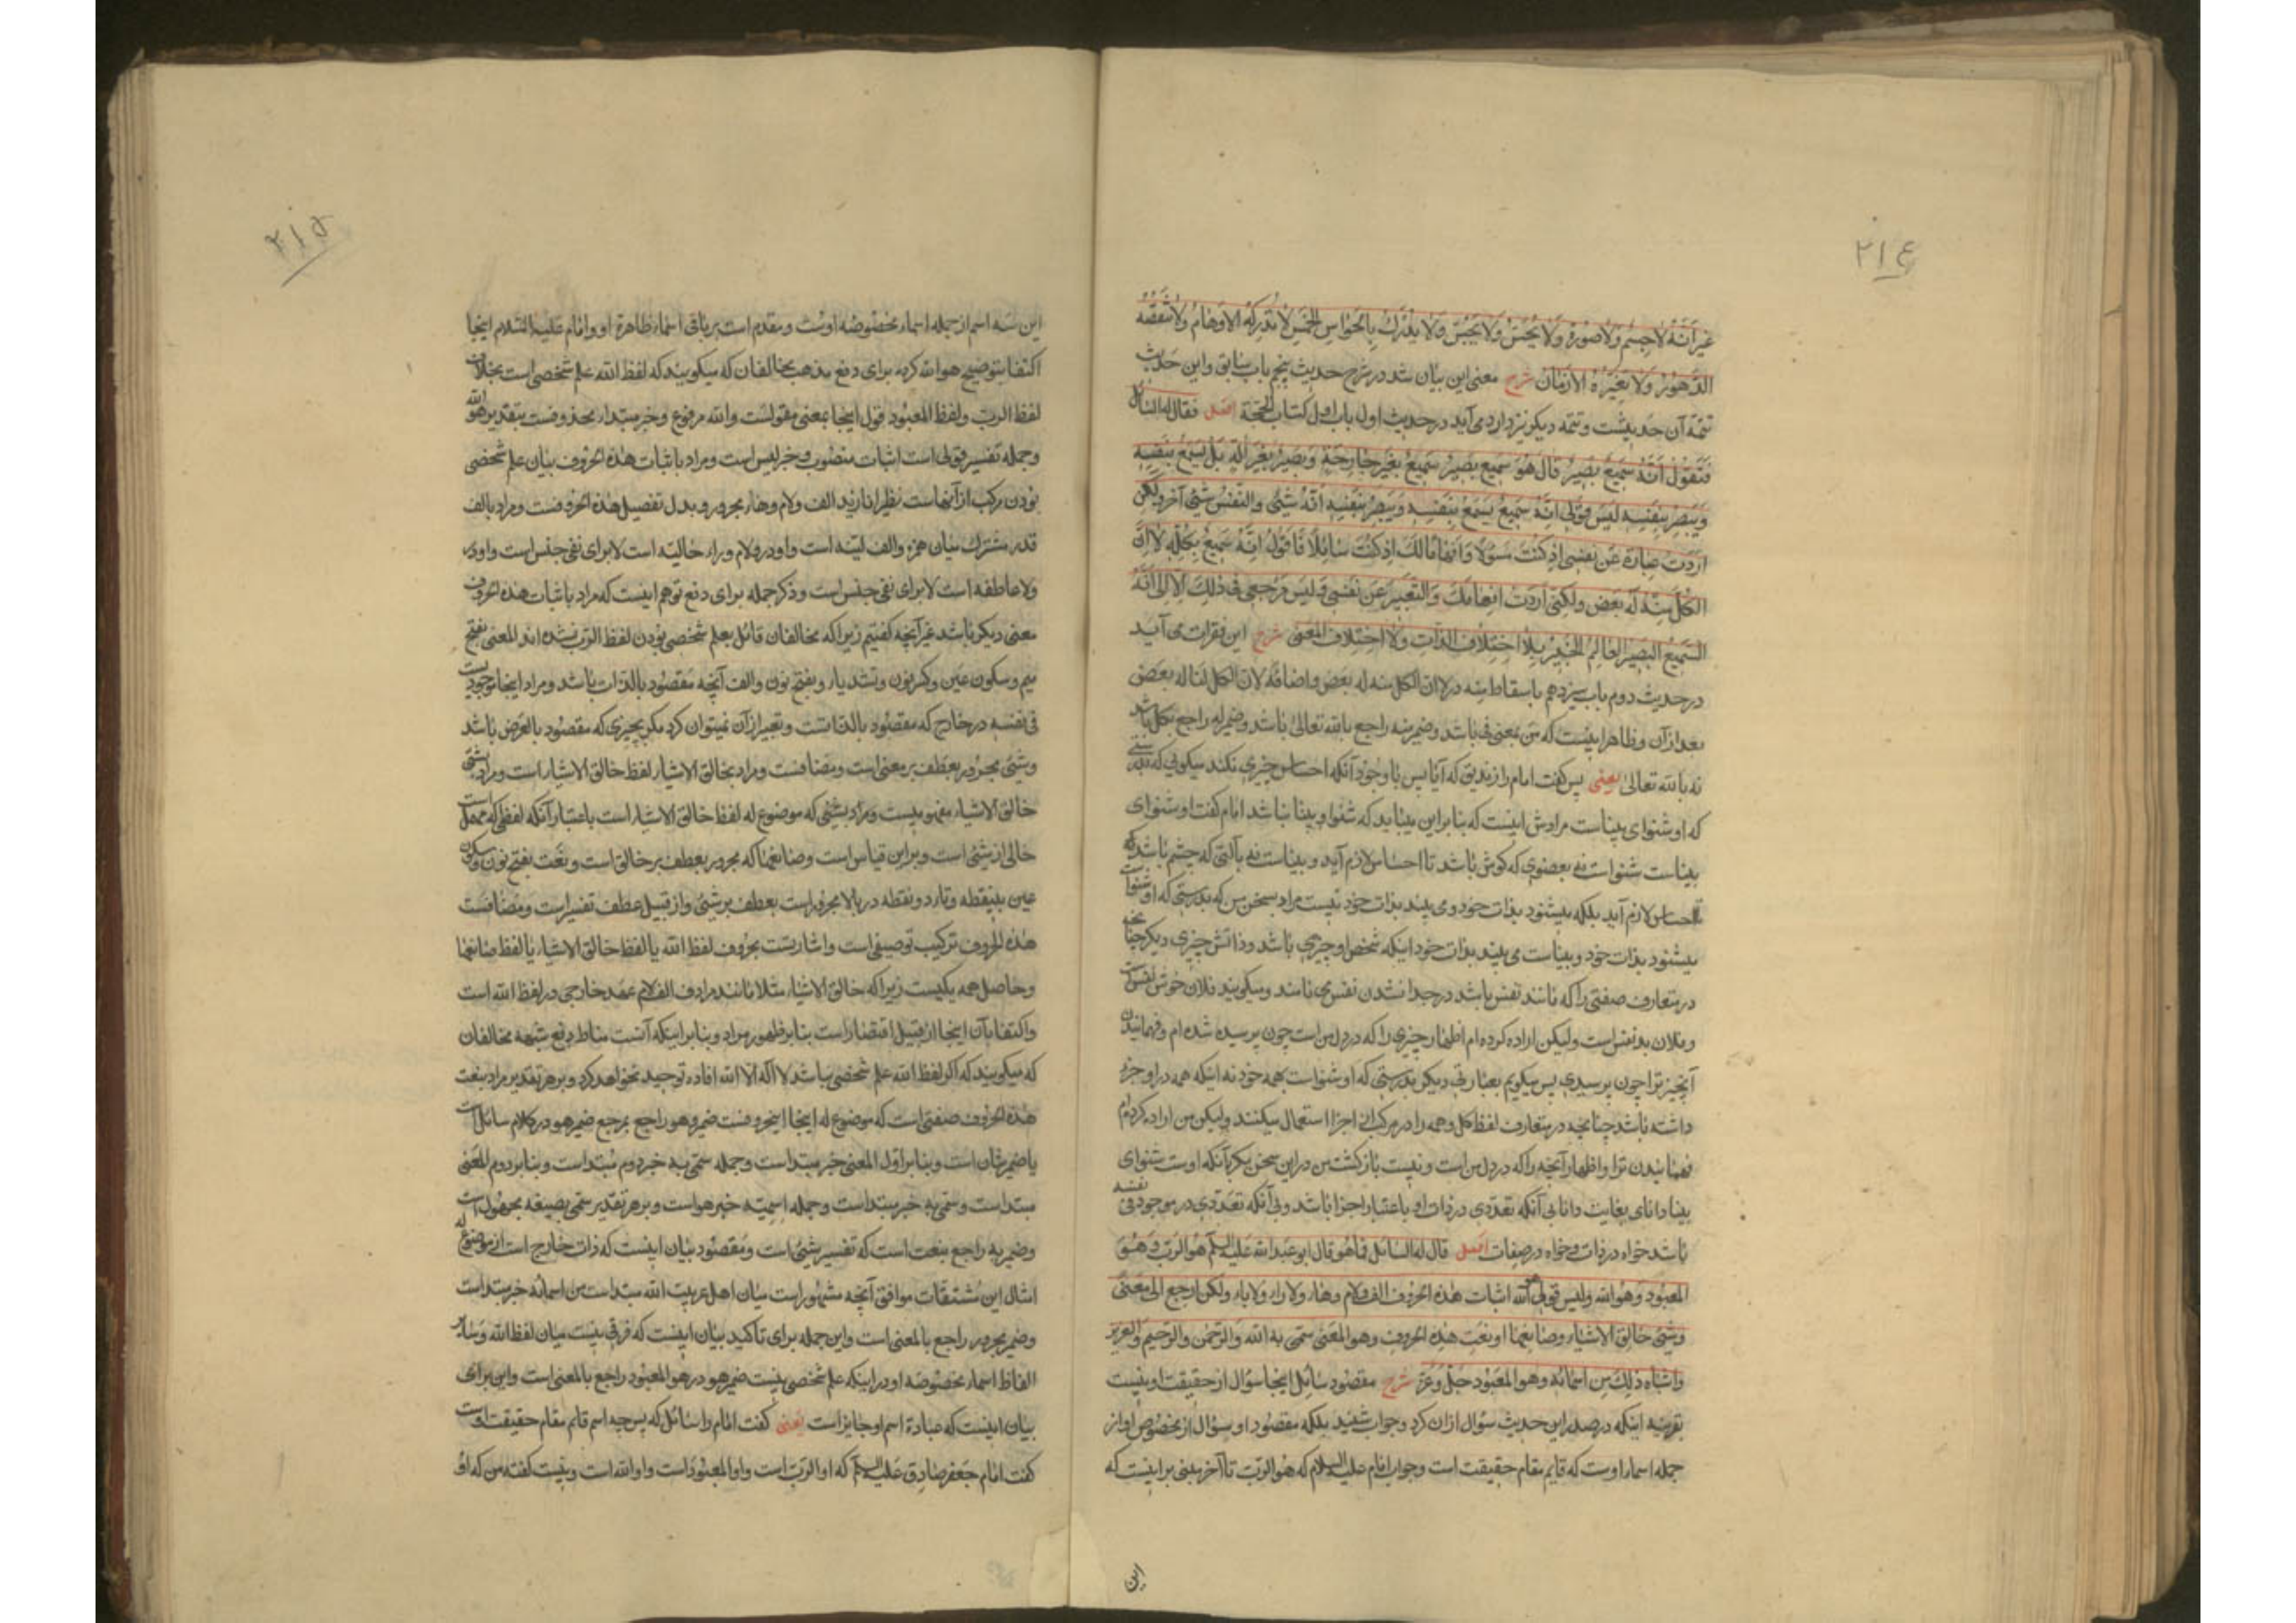 ۲۱۴
غَیرَ اَنَّهُ لَا جِسْمٌ وَلَا صُورَةٌ وَلَا یُحَسُّ وَلَا یُجَسُّ وَلَا یُدْرَكُ بِالْحَوَاسِّ الْخَمْسِ لَا تُدْرِكُهُ الْاَوْهَامُ وَلَا تَنْقُصُهُ
الدُّهُورُ وَلَا تُغَیِّرُهُ الْاَزْمَانُ شرح معنی این بیان شد در شرح حدیث پنجم باب سابق و این حدیث
تتمهٔ آن حدیثست و تتمه دیکر نیز دارد می آید در حدیث اول باب اول کتاب الحجة اصل فقال له السائل
فَتَقُولُ اِنَّهُ سَمِیعٌ بَصِیرٌ قَالَ هُوَ سَمِیعٌ بَصِیرٌ سَمِیعٌ بِغَیْرِ جَارِحَةٍ وَبَصِیرٌ بِغَیْرِ آلَةٍ بَلْ یَسْمَعُ بِنَفْسِهِ
وَیُبْصِرُ بِنَفْسِهِ لَیْسَ قَوْلِی اِنَّهُ سَمِیعٌ یَسْمَعُ بِنَفْسِهِ وَیُبْصِرُ بِنَفْسِهِ اَنَّهُ شَیْئٌ وَالنَّفْسُ شَیْئٌ آخَرُ وَلٰكِنْ
اَرَدْتُ عِبَارَةً عَنْ نَفْسِی اِذْ كُنْتُ مَسْؤُلًا وَاِفْهَامًا لَكَ اِذْ كُنْتَ سَائِلًا فَاَقُولُ اِنَّهُ سَمِیعٌ بِكُلِّهِ لَا اَنَّ
الْكُلَّ مِنْهُ لَهُ بَعْضٌ وَلٰكِنِّی اَرَدْتُ اِفْهَامَكَ وَالتَّعْبِیرُ عَنْ نَفْسِی وَلَیْسَ مَرْجِعِی فِی ذٰلِكَ اِلَّا اِلٰی اَنَّهُ
السَّمِیعُ الْبَصِیرُ الْعَالِمُ الْخَبِیرُ بِلَا اخْتِلَافِ الذَّاتِ وَلَا اخْتِلَافِ الْمَعْنٰی شرح این فقرات می آید
در حدیث دوم باب سیزدهم باسقاط منه در لا ان الکل منه له بعض و اضافهٔ لان الکل لنا له بعض
بعد از آن و ظاهر اینست که من بمعنی فی باشد و ضمیر منه راجع بالله تعالی باشد و ضمیر له راجع بکل باشد
نه بالله تعالی یعنی پس کفت امام را زندیق که آیا پس با وجود آنکه احساس چیزی نکند میکویی که
که او شنوای بیناست مرادش اینست که بنابراین میباید که شنوا و بینا نباشد امام کفت او شنوای
بیناست شنواست نه بعضوی که کوش باشد تا احساس لازم آید و بیناست نه بآلتی که چشم باشد که
احساس لازم آید بلکه میشنود بذات خود و می بیند بذات خود نیست مراد بسخن من که بدرستی که او شنواست
میشنود بذات خود و بیناست می بیند بذات خود اینکه شخص او چیزی باشد و ذاتش چیزی دیکر چنانچه
در متعارف صفتی را که مانند نفس باشد در جدا نشدن نفس می نامند و میکویند فلان خوش نفس است
و فلان بد نفس است ولیکن اراده کرده ام اظهار چیزی را که در دل من است چون پرسیده شده ام و فهمانیدن
آنچیز ترا چون پرسیدی پس میکویم بعبارتی دیکر بدرستی که او شنواست بهمه خود نه اینکه همه در او جزء
داشته باشد چنانچه در متعارف لفظ کل و همه را در مرکب از اجزا استعمال میکنند ولیکن من اراده کرده ام
فهمانیدن ترا و اظهار آنچه را که در دل من است و نیست باز کشت من در این سخن مکر بآنکه اوست شنوای
بینا دانای بغایت دانا بی آنکه تعددی در ذات او باعتبار اجزا باشد و بی آنکه تعددی در موجود فی نفسه
باشد خواه در ذات و خواه در صفات اصل قال له السائل فما هو قال ابو عبدالله علیه السلم هو الرب وَهُوَ
المعبُود وَهُوَ الله ولیس قولی الله اثبات هٰذه الحروف الف و لام وهاء ولا راء ولا باء ولکن ارجع الی مَعنًی
وشَیْئٍ خالق الاشیاء وصانعها ونعت هٰذه الحروف وهو المعنی سُمّی به الله وَالرَّحمٰن والرَّحیم والعزیز
واشباه ذٰلك من اسمائه وهو المعبُود جَلَّ وَعَزَّ شرح مقصُود سائل اینجا سؤال از حقیقت او نیست
بقرینه اینکه در صدر این حدیث سؤال ازان کرد و جواب شنید بلکه مقصُود او سؤال از مخصُوص او از
جمله اسماء اوست که قایم مقام حقیقت است و جواب امام علیه السلام که هو الرب تا آخر مبنی بر اینست که
این
۲۱۵
این سه اسم از جمله اسماء مخصوصه اوست و مقدم است بر باقی اسماء ظاهرهٔ او و امام علیه السَّلام اینجا
اکتفا بتوضیح هو الله کرده برای دفع مذهب مخالفان که میکویند که لفظ الله علم شخصی است بخلاف
لفظ الرب و لفظ المعبُود قول اینجا بمعنی مقولست و الله مرفوع و خبر مبتداء محذوفست بتقدیر هو الله
و جمله تفسیر قولی است اثبات منصُوب و خبر لیس است و مراد باثبات هذه الحروف بیان علم شخصی
بودن مرکب از آنهاست نظیر انا زید الف و لام و هاء مجرور و بدل تفصیل هذه الحروفست و مراد بالف
قدر مشترک میان همزه و الف لینه است و او در و لام و راء حالیّه است لا برای نفی جنس است و او در
ولا عاطفه است لا برای نفی جنس است و ذکر جمله برای دفع توهم اینست که مراد باثبات هذه الحروف
معنی دیکر باشد غیر آنچه کفتیم زیرا که مخالفان قائل بعلم شخصی بودن لفظ الرّب نشده اند المعنی بفتح
میم و سکون عین و کسر نون و تشدید یاء و بفتح نون و الف آنچه مقصُود بالذات باشد و مراد اینجا موجودیت
فی نفسه در خارج که مقصُود بالذاتست و تعبیر از آن نمیتوان کرد مکر بچیزی که مقصُود بالعرض باشد
و شئ مجرور بعطف بر معنی است و مضافست و مراد بخالق الاشیاء لفظ خالق الاشیاء است و مراد بشئ
خالق الاشیاء مفهومیست و مراد بشئی که موضوع له لفظ خالق الاشیاء است باعتبار آنکه لفظی که مهمل است
خالی از شئ است و براین قیاس است و صانعها که مجرور بعطف بر خالق است و نعت بفتح نون و سکون
عین بینقطه و تاء دو نقطه در بالا مجرور است بعطف بر شئ و از قبیل عطف تفسیر است و مضافست
هذه الحروف ترکیب توصیفی است و اشارتست بحروف لفظ الله یا لفظ خالق الاشیاء یا لفظ صانعها
و حاصل همه یکیست زیرا که خالق الاشیاء مثلا مانند مرادف الف لام عهد خارجی در لفظ الله است
و اکتفا بآن اینجا از قبیل اقتصار است بنابر ظهور مراد و بنابر اینکه آنست مناط دفع شبهه مخالفان
که میکویند که اکر لفظ الله علم شخصی نباشد لا اله الا الله افاده توحید نخواهد کرد و بر هر تقدیر مراد بنعت
هذه الحروف صفتی است که موضوع له اینجا اینحروفست ضمیر وهو راجع بمرجع ضمیر هو در کلام سائل است
یا ضمیر شان است و بنابر اوّل المعنی خبر مبتداست و جمله سمّی به خبر دوم مُبتداست و بنابر دوم المَعنی
مبتداست و سمّی به خبر مبتداست و جمله اسمیّه خبر هو است و بر هر تقدیر سمّی بصیغه مجهُول است
و ضمیر به راجع بنعت است که تفسیر شئ است و مقصُود بیان اینست که ذات خارج است از موضوع له
امثال این مُشتقات موافق آنچه مشهُور است میان اهل عربیت الله مبتداست من اسمائه خبر مبتداست
و ضمیر مجرور راجع بالمعنی است و این جمله برای تاکید بیان اینست که فرقی نیست میان لفظ الله وَسَایر
الفاظ اسماء مخصُوصه او در اینکه علم شخصی نیست ضمیر هو در هو المعبُود راجع بالمعنی است و این برای
بیان اینست که عبادة اسم او جایز است یعنی کفت امام را سائل که پس چه اسم قایم مقام حقیقت اوست
کفت امام جَعفر صادِق علیه السلم که او الرّب است و او المعبُود است و او الله است و نیست کفته من که او